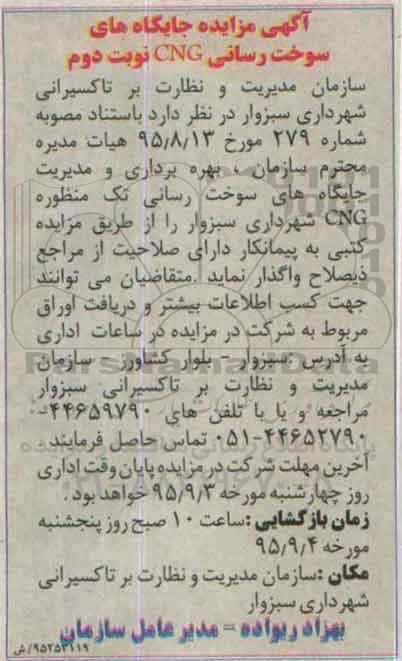 آگهی مزایده جایگاه های
سوخت رسانی CNG نوبت دوم
سازمان مدیریت و نظارت بر تاکسیرانی
شهرداری سبزوار در نظر دارد باستناد مصوبه
شماره ۲۷۹ مورخ ۹۵٫۸٫۱۳ هیات مدیره
محترم سازمان ، بهره برداری و مدیریت
جایگاه های سوخت رسانی تک منظوره
CNG شهرداری سبزوار را از طریق مزایده
کتبی به پیمانکار دارای صلاحیت از مراجع
ذیصلاح واگذار نماید .متقاضیان می توانند
جهت کسب اطلاعات بیشتر و دریافت اوراق
مربوط به شرکت در مزایده در ساعات اداری
به آدرس :سبزوار - بلوار کشاورز - سازمان
مدیریت و نظارت بر تاکسیرانی سبزوار
مراجعه و یا با تلفن های ۴۴۶۵۹۷۹۰-
۰۵۱-۴۴۶۵۲۷۹۰ تماس حاصل فرمایند .
آخرین مهلت شرکت در مزایده پایان وقت اداری
روز چهارشنبه مورخه ۹۵٫۹٫۳ خواهد بود .
زمان بازگشایی :ساعت ۱۰ صبح روز پنجشنبه
مورخه ۹۵٫۹٫۴
مکان :سازمان مدیریت و نظارت بر تاکسیرانی
شهرداری سبزوار
بهزاد ریواده – مدیر عامل سازمان
۹۵۲۵۳۱۱۹/ش
ParsNamadData